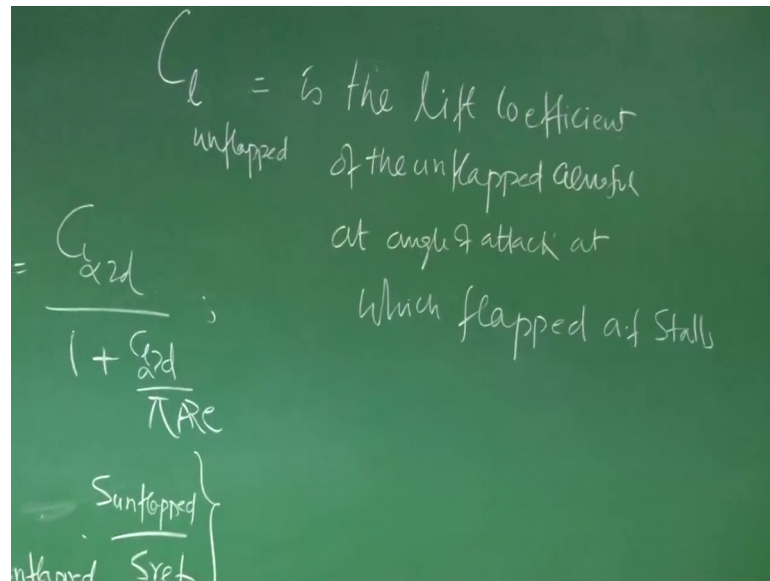 C_l unflapped = is the lift coefficient
of the unflapped aerofoil
at angle of attack at
which flapped a.f stalls
= C_lα2d / (1 + C_lα2d / πARe) ;
Sunflapped / Sref }